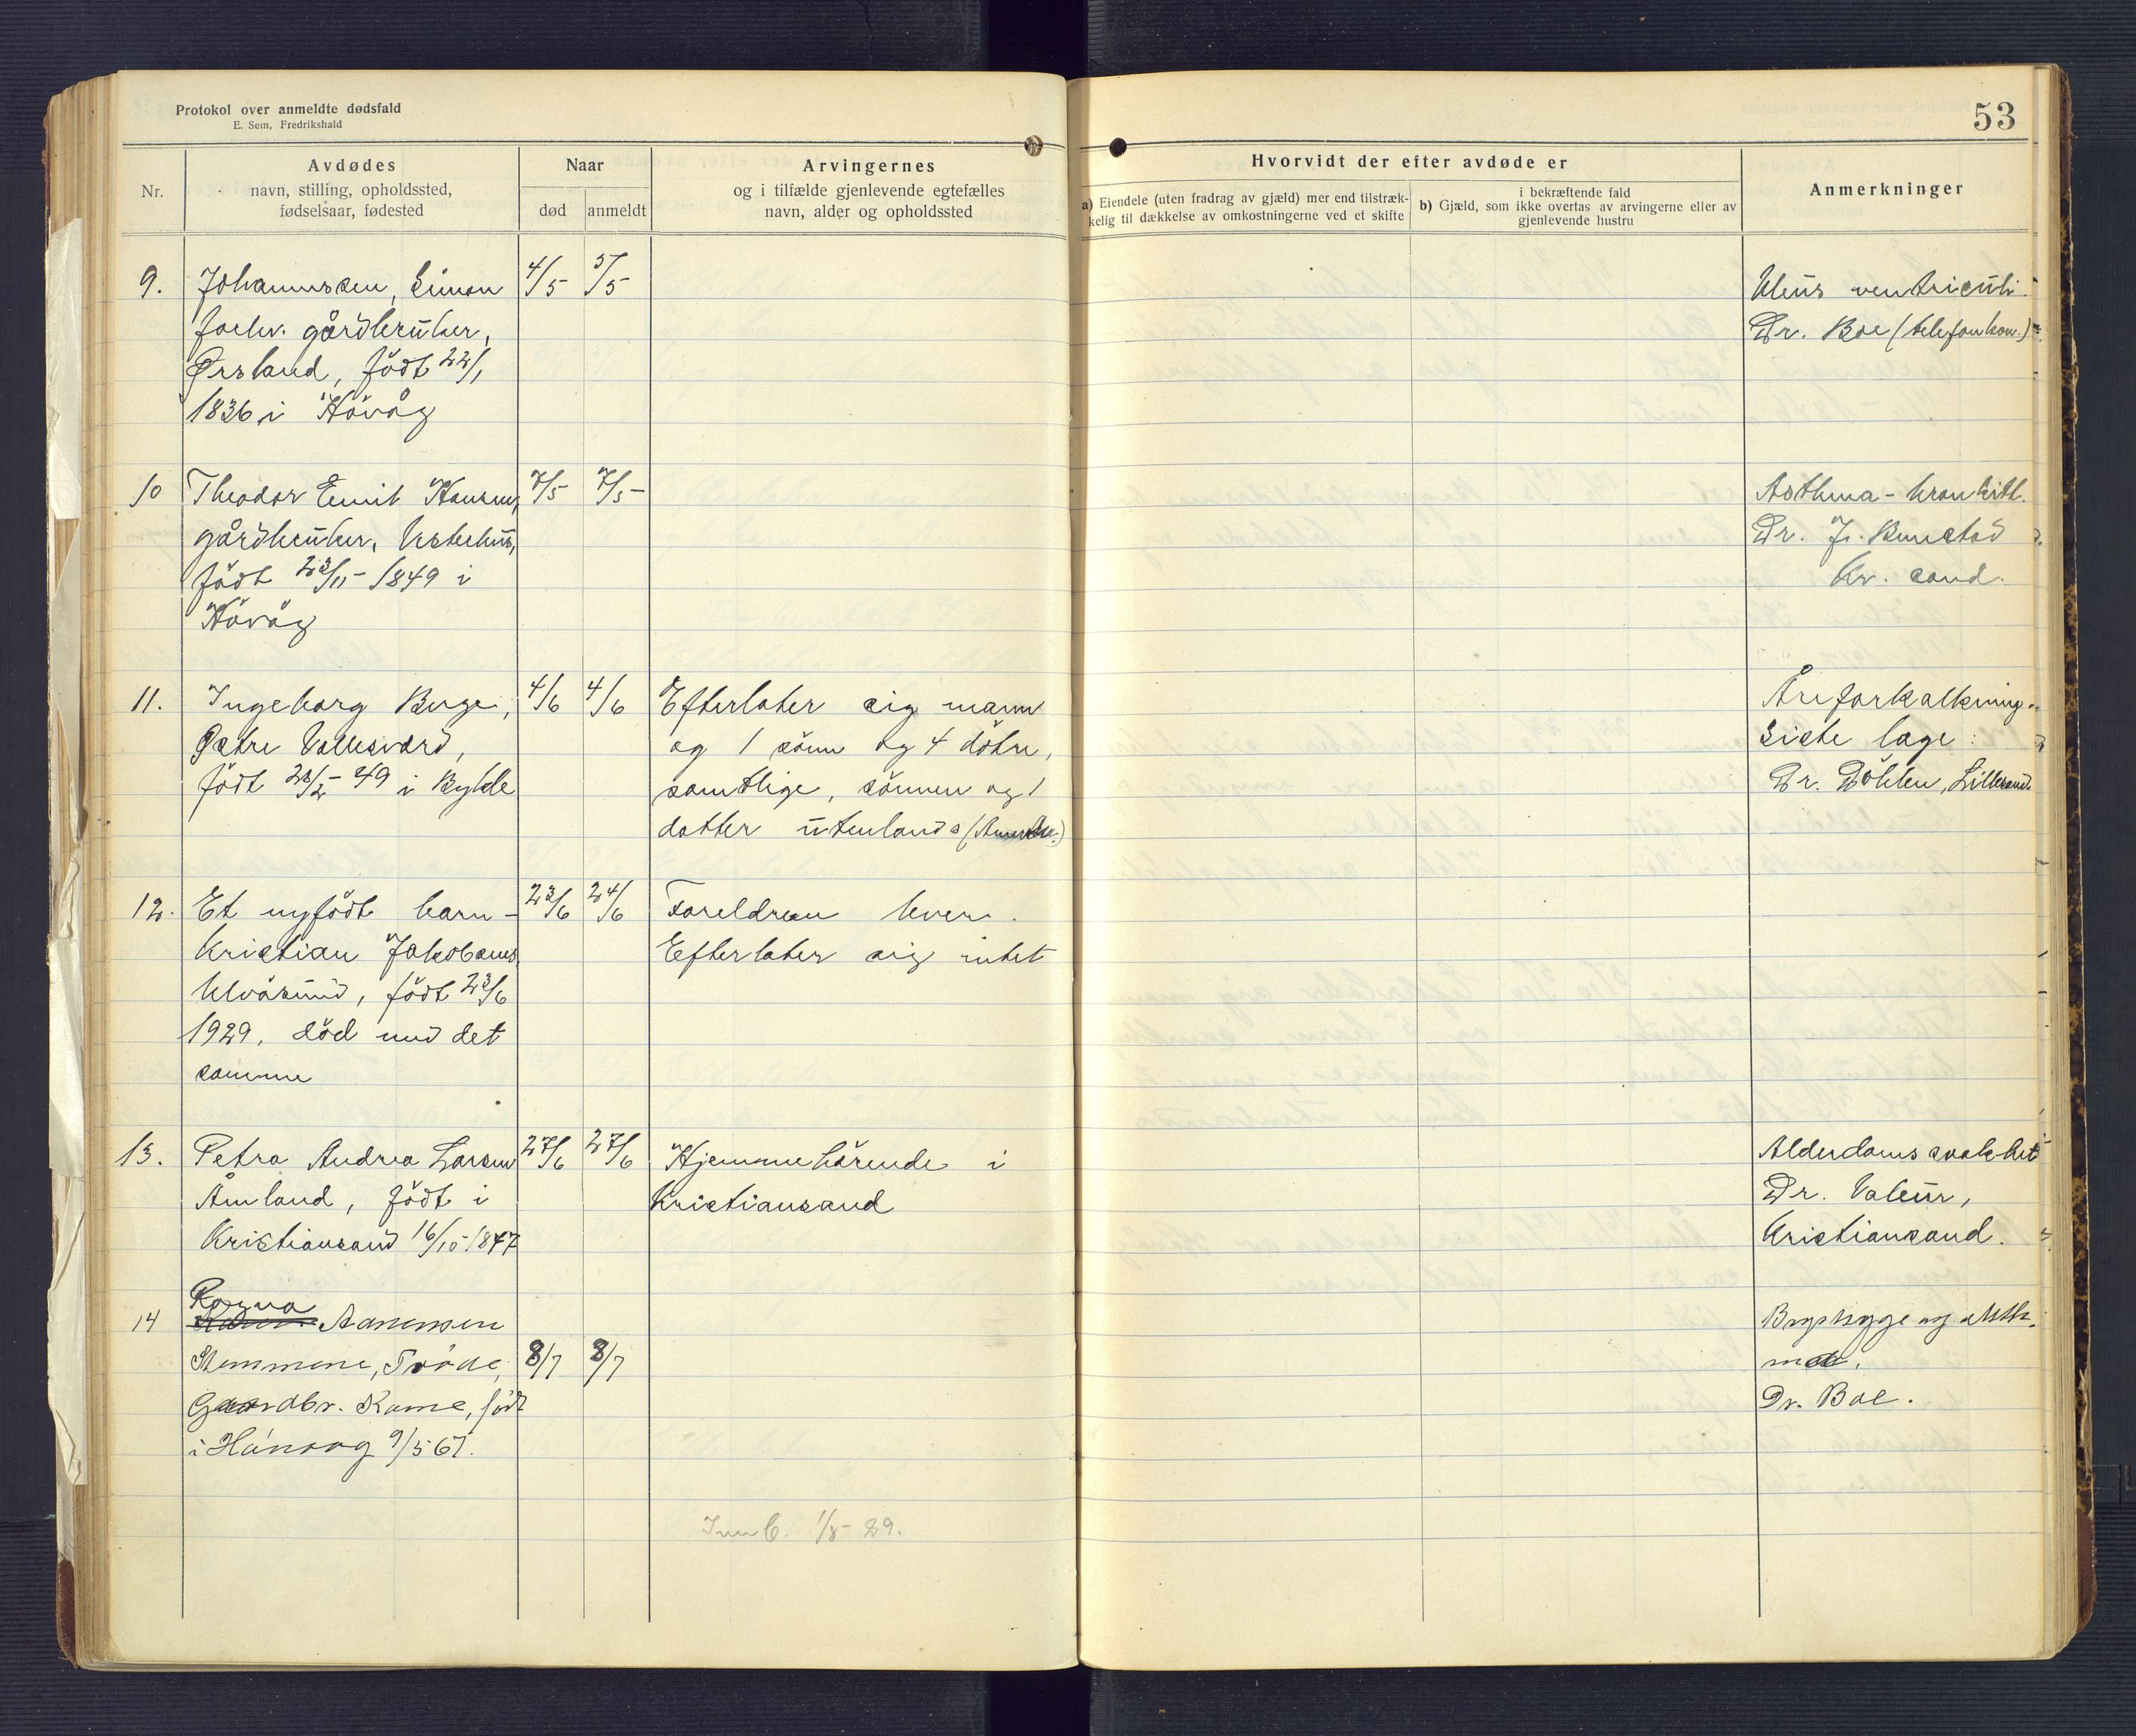 Protokol over anmeldte dødsfald
E. Sem, Fredrikshald
53
Nr.
Avdødes
navn, stilling, opholdssted,
fødselsaar, fødested
Naar
død
anmeldt
Arvingernes
og i tilfælde gjenlevende egtefælles
navn, alder og opholdssted
Hvorvidt der efter avdøde er
a) Eiendele (uten fradrag av gjæld) mer end tilstræk-
kelig til dækkelse av omkostningerne ved et skifte
i bekræftende fald
b) Gjæld, som ikke overtas av arvingerne eller av
gjenlevende hustru
Anmerkninger
9. Johannessen, Simon 4/5 5/5
forhv. gårdbruker,
født 22/1
1836 i Høvåg
Ulcus ventriculi.
Dr. Boe (telefonkon.)
10 Theodor Emil Hansen, 7/5 7/5
gårdbruker, Vestehus,
født 23/11 - 1849 i
Høvåg
Asthma - bronkitt.
Dr. J. Bunstad
Kr. sand.
11. Ingeborg Berge, 4/6 4/6
Østre Vallesverd,
født 28/2 - 49 i Bykle
Efterlater sig mann
og 1 sønn og 4 døtre,
samtlige, sønnen og 1
datter utenlands
Åreforkalkning.
Siste læge:
Dr. Døhlen, Lillesand
12. Et nyfødt barn - 23/6 24/6
Kristian Jakobsens
Ulvøsund, født 23/6
1929, død med det
samme
Foreldren lever.
Efterlater sig intet
13. Petra Andrea Larsen 27/6 27/6
Åmland, født i
Kristiansand 16/10 - 1847
Hjemmehørende i
Kristiansand
Alderdomssvakhet
Dr. Valeur,
Kristiansand.
Ragna
14 Aanensen
Stemmene, Trøde, 8/7 8/7
Gaardbr. Kone, født
i Høvaag 9/5 67.
og
Dr. Boe.
1/8 - 29.